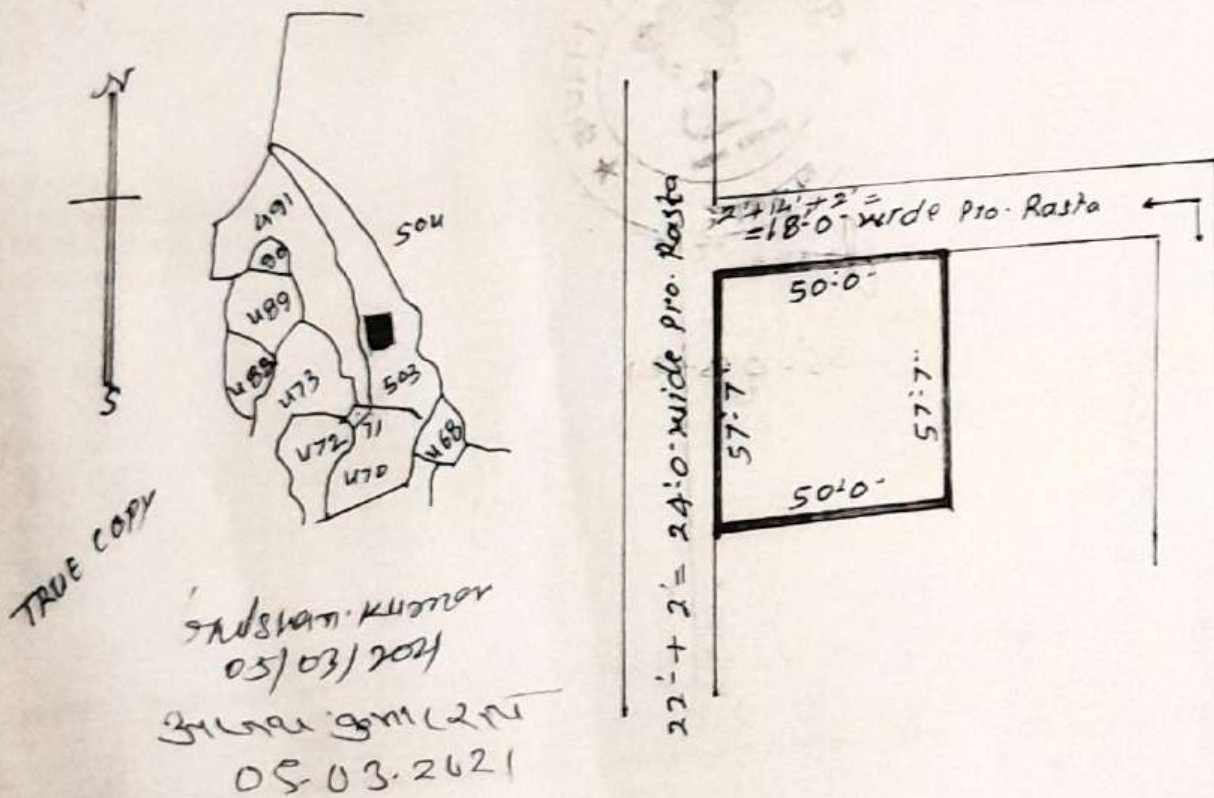 N
S
491
504
489
488
473
503
472
71
470
468
TRUE COPY
Kumar
05/03/2021
05-03-2021
22' + 2' = 24'-0" wide Pro. Rasta
2' + 14' + 2' =
= 18'-0" wide Pro. Rasta
50'-0"
57'-7"
57'-7"
50'-0"